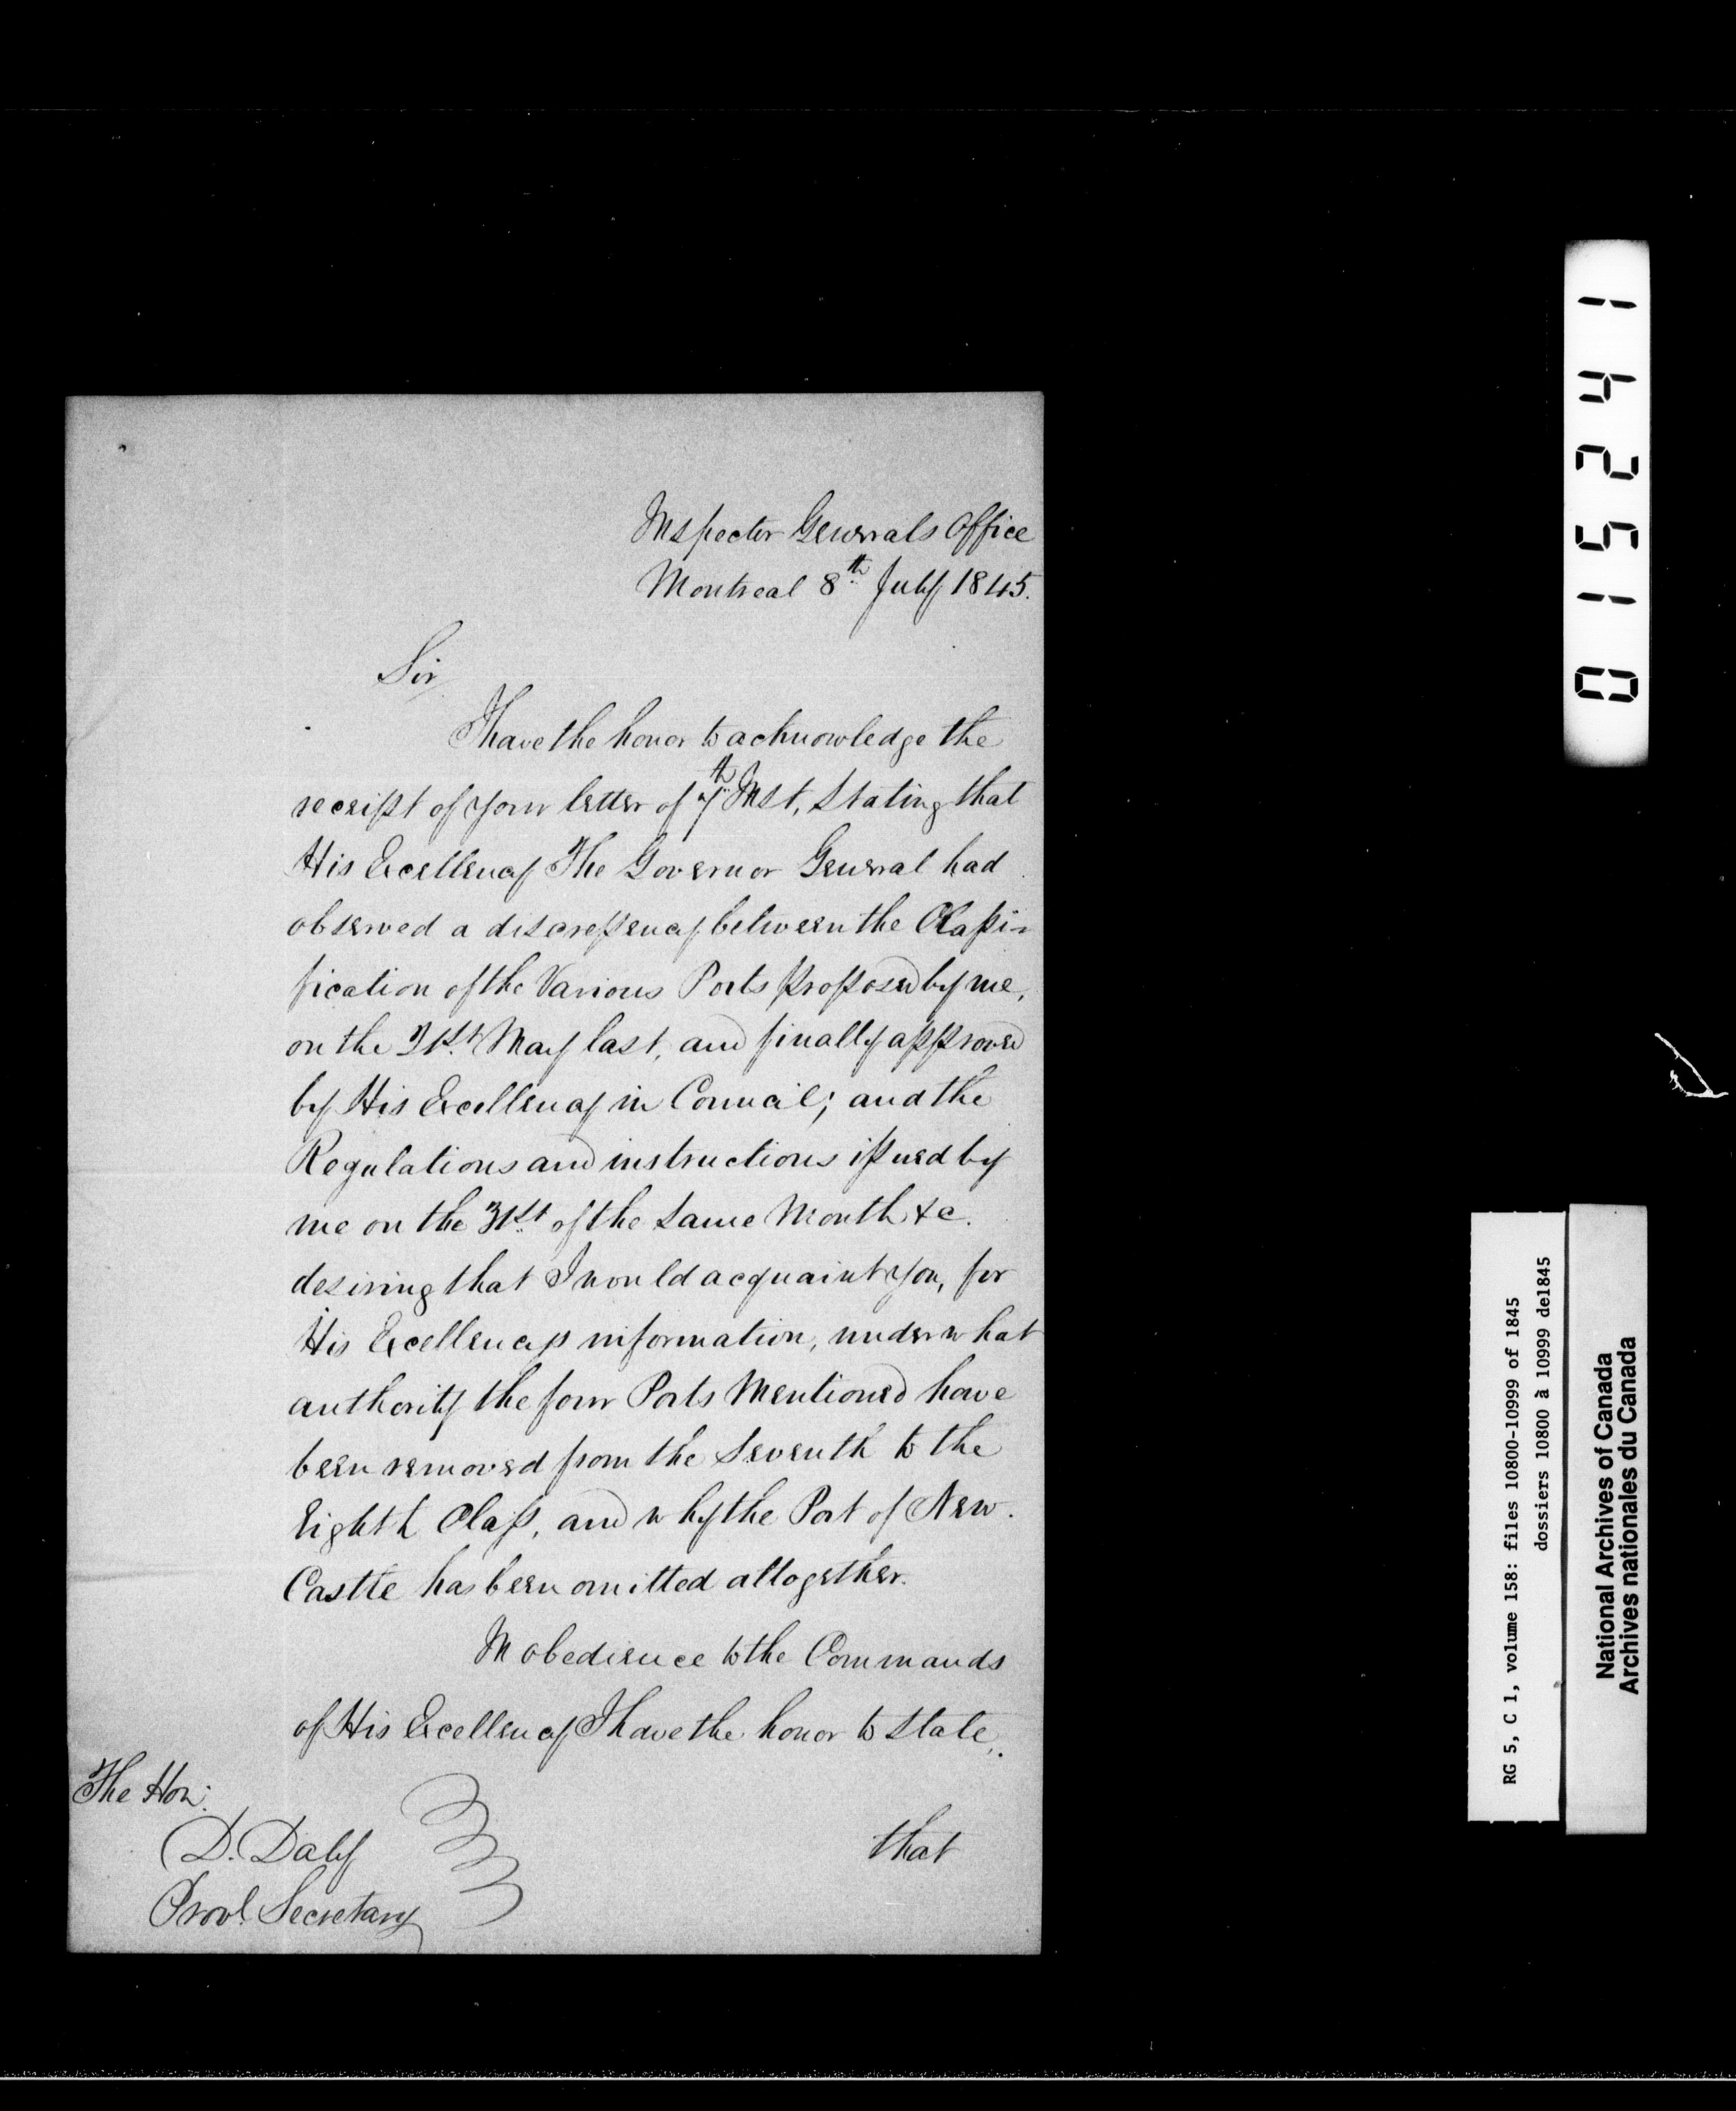 Inspector Generals Office
Montreal 8th July 1845.
Sir
I have the honor to acknowledge the
receipt of your letter of 7th Inst, stating that
His Excellency The Governor General had
observed a discrepency between the Classi-
fication of the Various Ports proposed by me,
on the 31st May last, and finally approved
by His Excellency in Council; and the
Regulations and instructions issued by
me on the 31st of the same Month &c.
desiring that I would acquaint you, for
His Excellencys information, under what
authority the four Ports Mentioned have
been removed from the Seventh to the
Eighth Class, and why the Port of New
Castle has been omitted altogether.
In obedience to the Commands
of His Excellency I have the honor to state,
The Hon:
D. Daly
Provl. Secretary
that
015241
RG 5, C 1, volume 158: files 10800-10999 of 1845
dossiers 10800 à 10999 de1845
National Archives of Canada
Archives nationales du Canada